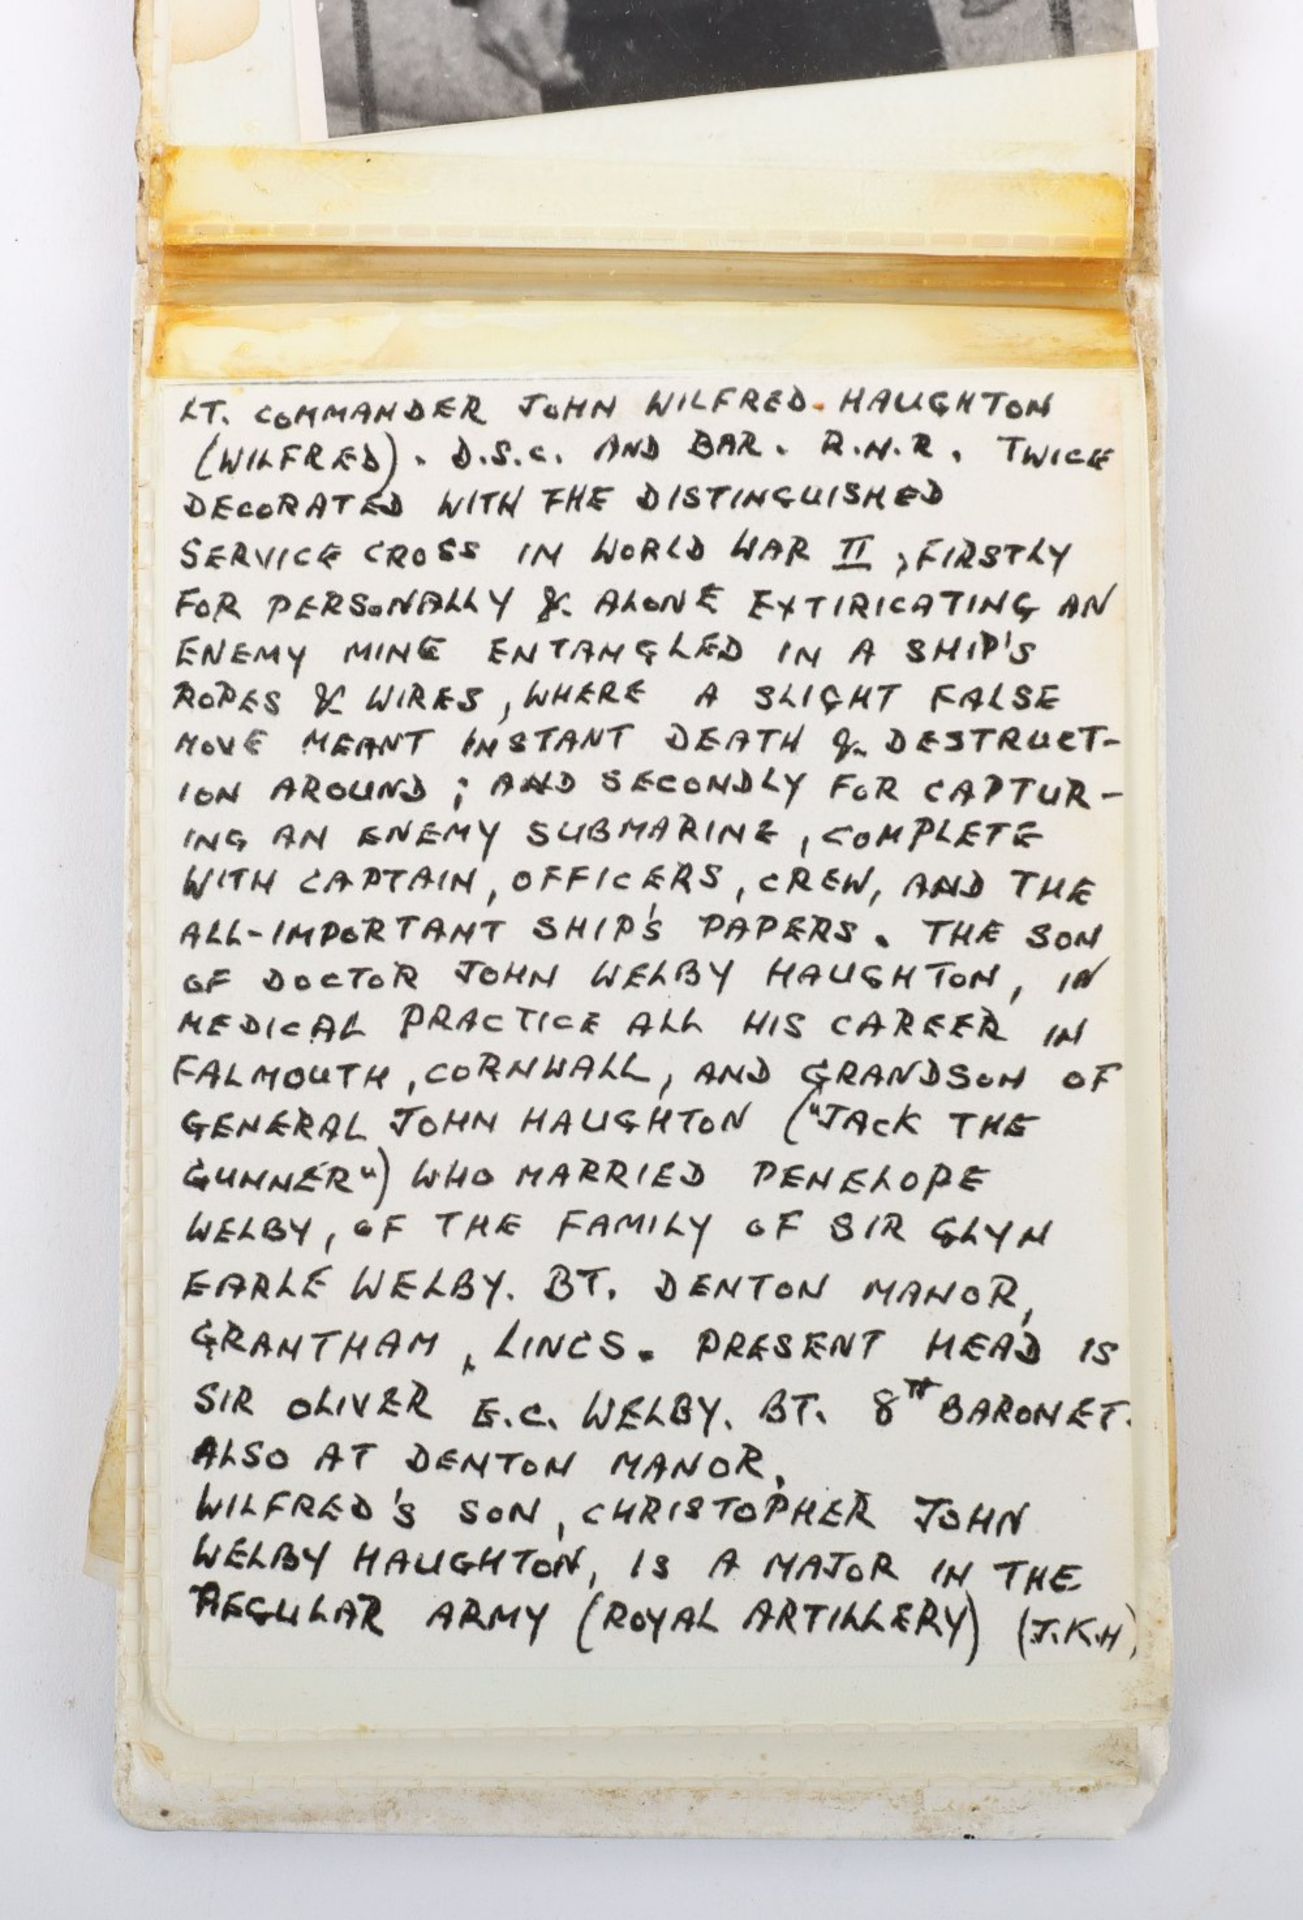 LT. COMMANDER JOHN WILFRED. HAUGHTON
(WILFRED). D.S.C. AND BAR. R.N.R. TWICE
DECORATED WITH THE DISTINGUISHED
SERVICE CROSS IN WORLD WAR II, FIRSTLY
FOR PERSONALLY & ALONE EXTIRICATING AN
ENEMY MINE ENTANGLED IN A SHIP'S
ROPES & WIRES, WHERE A SLIGHT FALSE
MOVE MEANT INSTANT DEATH & DESTRUCT-
ION AROUND; AND SECONDLY FOR CAPTUR-
ING AN ENEMY SUBMARINE, COMPLETE
WITH CAPTAIN, OFFICERS, CREW, AND THE
ALL-IMPORTANT SHIP'S PAPERS. THE SON
OF DOCTOR JOHN WELBY HAUGHTON, IN
MEDICAL PRACTICE ALL HIS CAREER IN
FALMOUTH, CORNWALL, AND GRANDSON OF
GENERAL JOHN HAUGHTON ("JACK THE
GUNNER") WHO MARRIED PENELOPE
WELBY, OF THE FAMILY OF SIR GLYN
EARLE WELBY. BT. DENTON MANOR,
GRANTHAM, LINCS. PRESENT HEAD IS
SIR OLIVER E.C. WELBY. BT. 8TH BARONET.
ALSO AT DENTON MANOR.
WILFRED'S SON, CHRISTOPHER JOHN
WELBY HAUGHTON, IS A MAJOR IN THE
REGULAR ARMY (ROYAL ARTILLERY) (J.K.H)